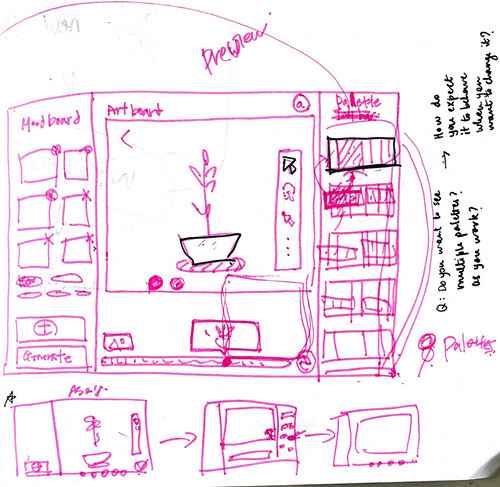 Preview
Moodboard
Artboard
a
Palette
Generate
→ How do
you expect
it to behave
when you
want to change it?
Q: Do you want to see
multiple palettes?
as you work?
Palettes